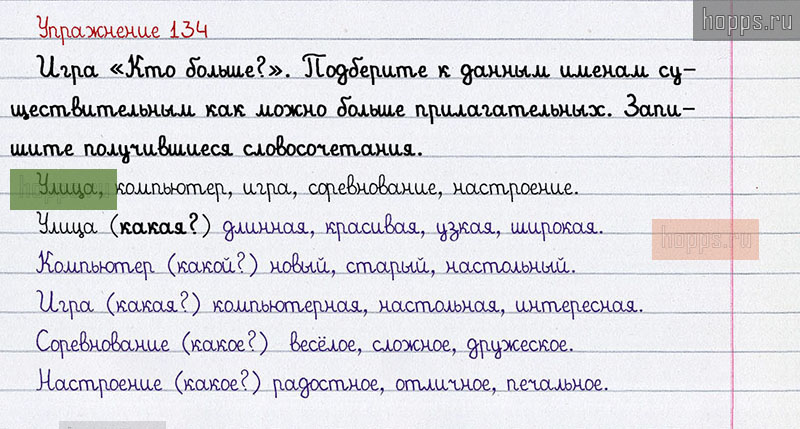 Упражнение 134
hopps.ru
Игра «Кто больше?». Подберите к данным именам су-
ществительным как можно больше прилагательных. Запи-
шите получившиеся словосочетания.
Улица, компьютер, игра, соревнование, настроение.
Улица (какая?) длинная, красивая, узкая, широкая.
hopps.ru
Компьютер (какой?) новый, старый, настольный.
Игра (какая?) компьютерная, настольная, интересная.
Соревнование (какое?) весёлое, сложное, дружеское.
Настроение (какое?) радостное, отличное, печальное.